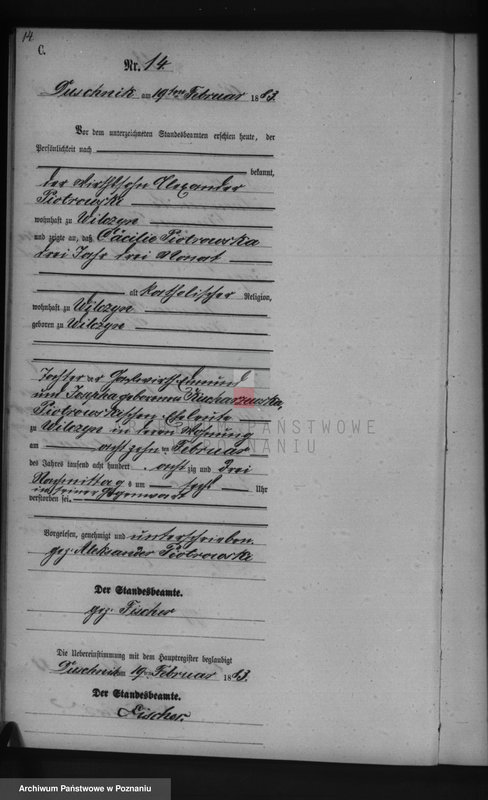 14
C.
Nr. 14
Duschnik am 19ten Februar 1883.
Vor dem unterzeichneten Standesbeamten erschien heute, der
Persönlichkeit nach
bekannt,
der Wirthssohn Alexander
Piotrowski
wohnhaft zu Wilczyn
und zeigte an, daß Cäcilie Piotrowska
drei Jahr drei Monat
alt katholischer Religion,
wohnhaft zu Wilczyn
geboren zu Wilczyn
Tochter der Gastwirth Edmund
und Josepha geborenen Kucharzewska,
Piotrowskischen Eheleute
zu Wilczyn in deren Wohnung
am achtzehnten Februar
des Jahres tausend acht hundert achtzig und drei
Nachmittags um sechs Uhr
in seiner Gegenwart
verstorben sei.
Vorgelesen, genehmigt und unterschrieben
gez. Aleksander Piotrowski
Der Standesbeamte.
gez. Fischer
Die Uebereinstimmung mit dem Hauptregister beglaubigt
Duschnik am 19ten Februar 1883.
Der Standesbeamte.
Fischer.
ARCHIWUM PAŃSTWOWE
W POZNANIU
Archiwum Państwowe w Poznaniu